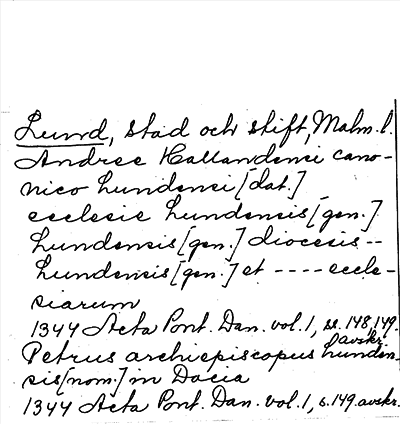 Lund, stad och stift, Malm. l.
Andree Hallandensi cano-
nico Lundensi [dat.]
ecclesie Lundensis [gen.]
Lundensis [gen.] diocesis --
Lundensis [gen.] et ---- eccle-
siarum
1344 Acta Pont. Dan. vol. 1, ss. 148, 149.
avskr.
Petrus archiepiscopus Lunden-
sis [nom.] in Dacia
1344 Acta Pont. Dan. vol. 1, s. 149. avskr.